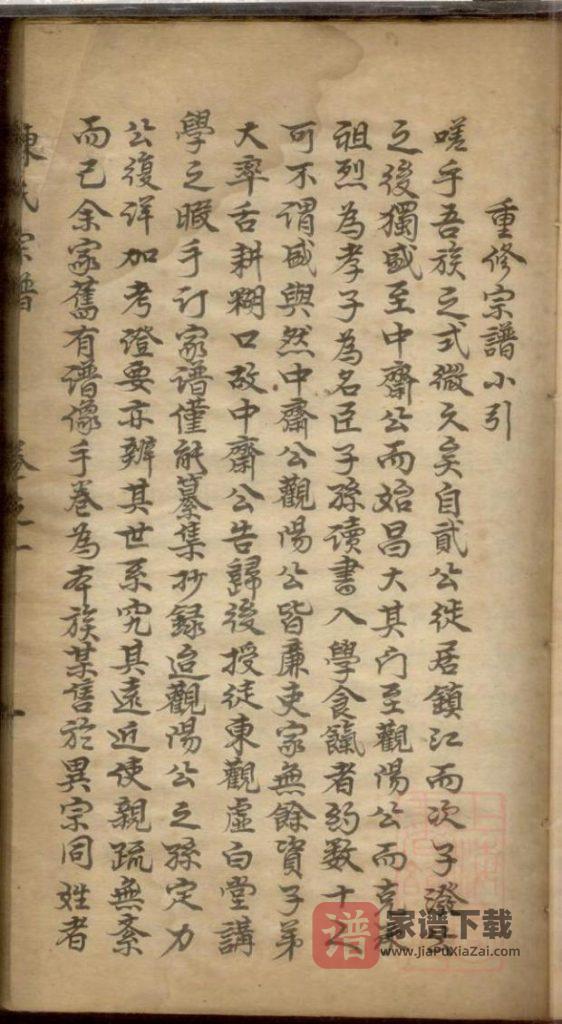 重修宗譜小引
嗟乎吾族之式微久矣自貳公徙居鎮江而次子澄
之後獨盛至中齋公而始昌大其门至觀陽公而克
祖烈為孝子為名臣子孫讀書入學食餼者約數十人
可不謂盛與然中齋公觀陽公皆廉吏家無餘資子弟
大率舌耕糊口故中齋公告歸後授徒東觀虛白堂講
學之暇手订家谱僅能纂集抄録迨觀陽公之孫定力
公復详加考證要亦辨其世系究其遠近使親疏無紊
而已余家舊有谱像手卷為本族某售於異宗同姓者
陳氏宗譜
卷之一
家谱下载
www.JiaPuXiaZai.com
谱